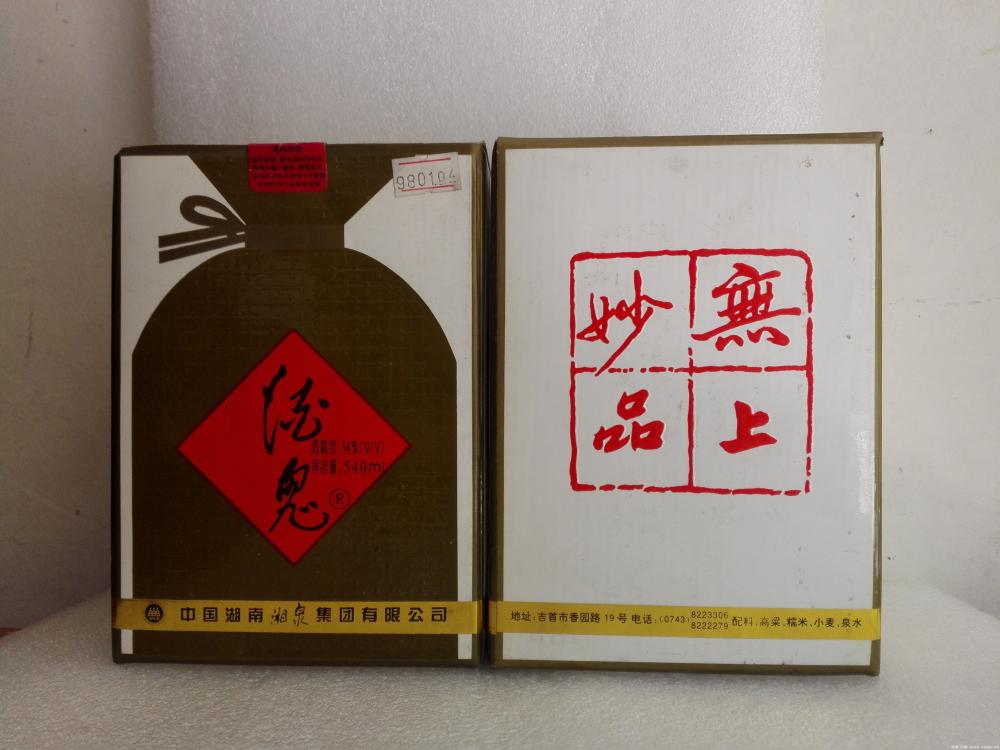 980104
酒鬼®
酒精度:54%(V/V)
净含量:540ml
中国湖南湘泉集团有限公司
無上
妙品
地址:吉首市香园路19号 电话:(0743)8223306
8222279
配料:高粱、糯米、小麦、泉水